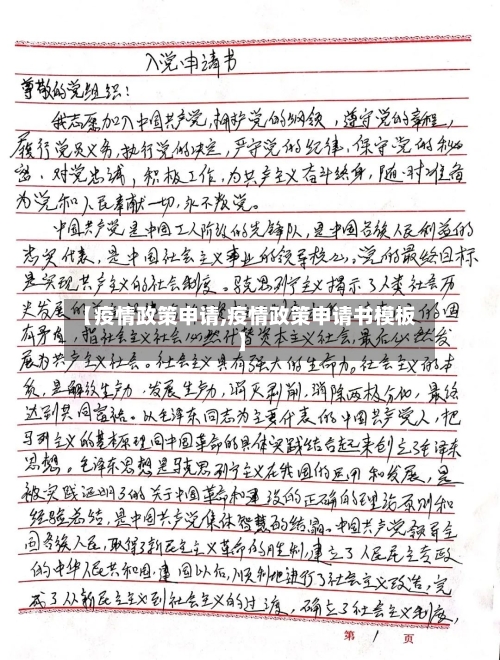 入党申请书
尊敬的党组织：
我志愿加入中国共产党，拥护党的纲领，遵守党的章程，
履行党员义务，执行党的决定，严守党的纪律，保守党的秘
密，对党忠诚，积极工作，为共产主义奋斗终身，随时准备
为党和人民牺牲一切，永不叛党。
中国共产党是中国工人阶级的先锋队，是中国各族人民利益的
忠实代表，是中国社会主义事业的领导核心，党的最终目标
是实现共产主义的社会制度。马克思列宁主义揭示了人类社会历
史发展的
【疫情政策申请,疫情政策申请书模板
】
有矛盾，指社会主义社会必然代替资本主义社会，最后必然发
展为共产主义社会。社会主义具有强大的生命力。社会主义的本
质，是解放生产力，发展生产力，消灭剥削，消除两极分化，最终
达到共同富裕。以毛泽东同志为主要代表的中国共产党人，把
马列主义的基本原理同中国革命的具体实践结合起来创立了毛泽东
思想。毛泽东思想是马克思列宁主义在我国的运用和发展，是
被实践证明了的关于中国革命和建设的正确的理论原则和
经验总结，是中国共产党集体智慧的结晶。中国共产党领导全
国各族人民，取得了新民主主义革命的胜利，建立了人民民主专政
的中华人民共和国，建国以后，顺利地进行了社会主义改造，完
成了从新民主主义到社会主义的过渡，确立了社会主义制度，
第 1 页